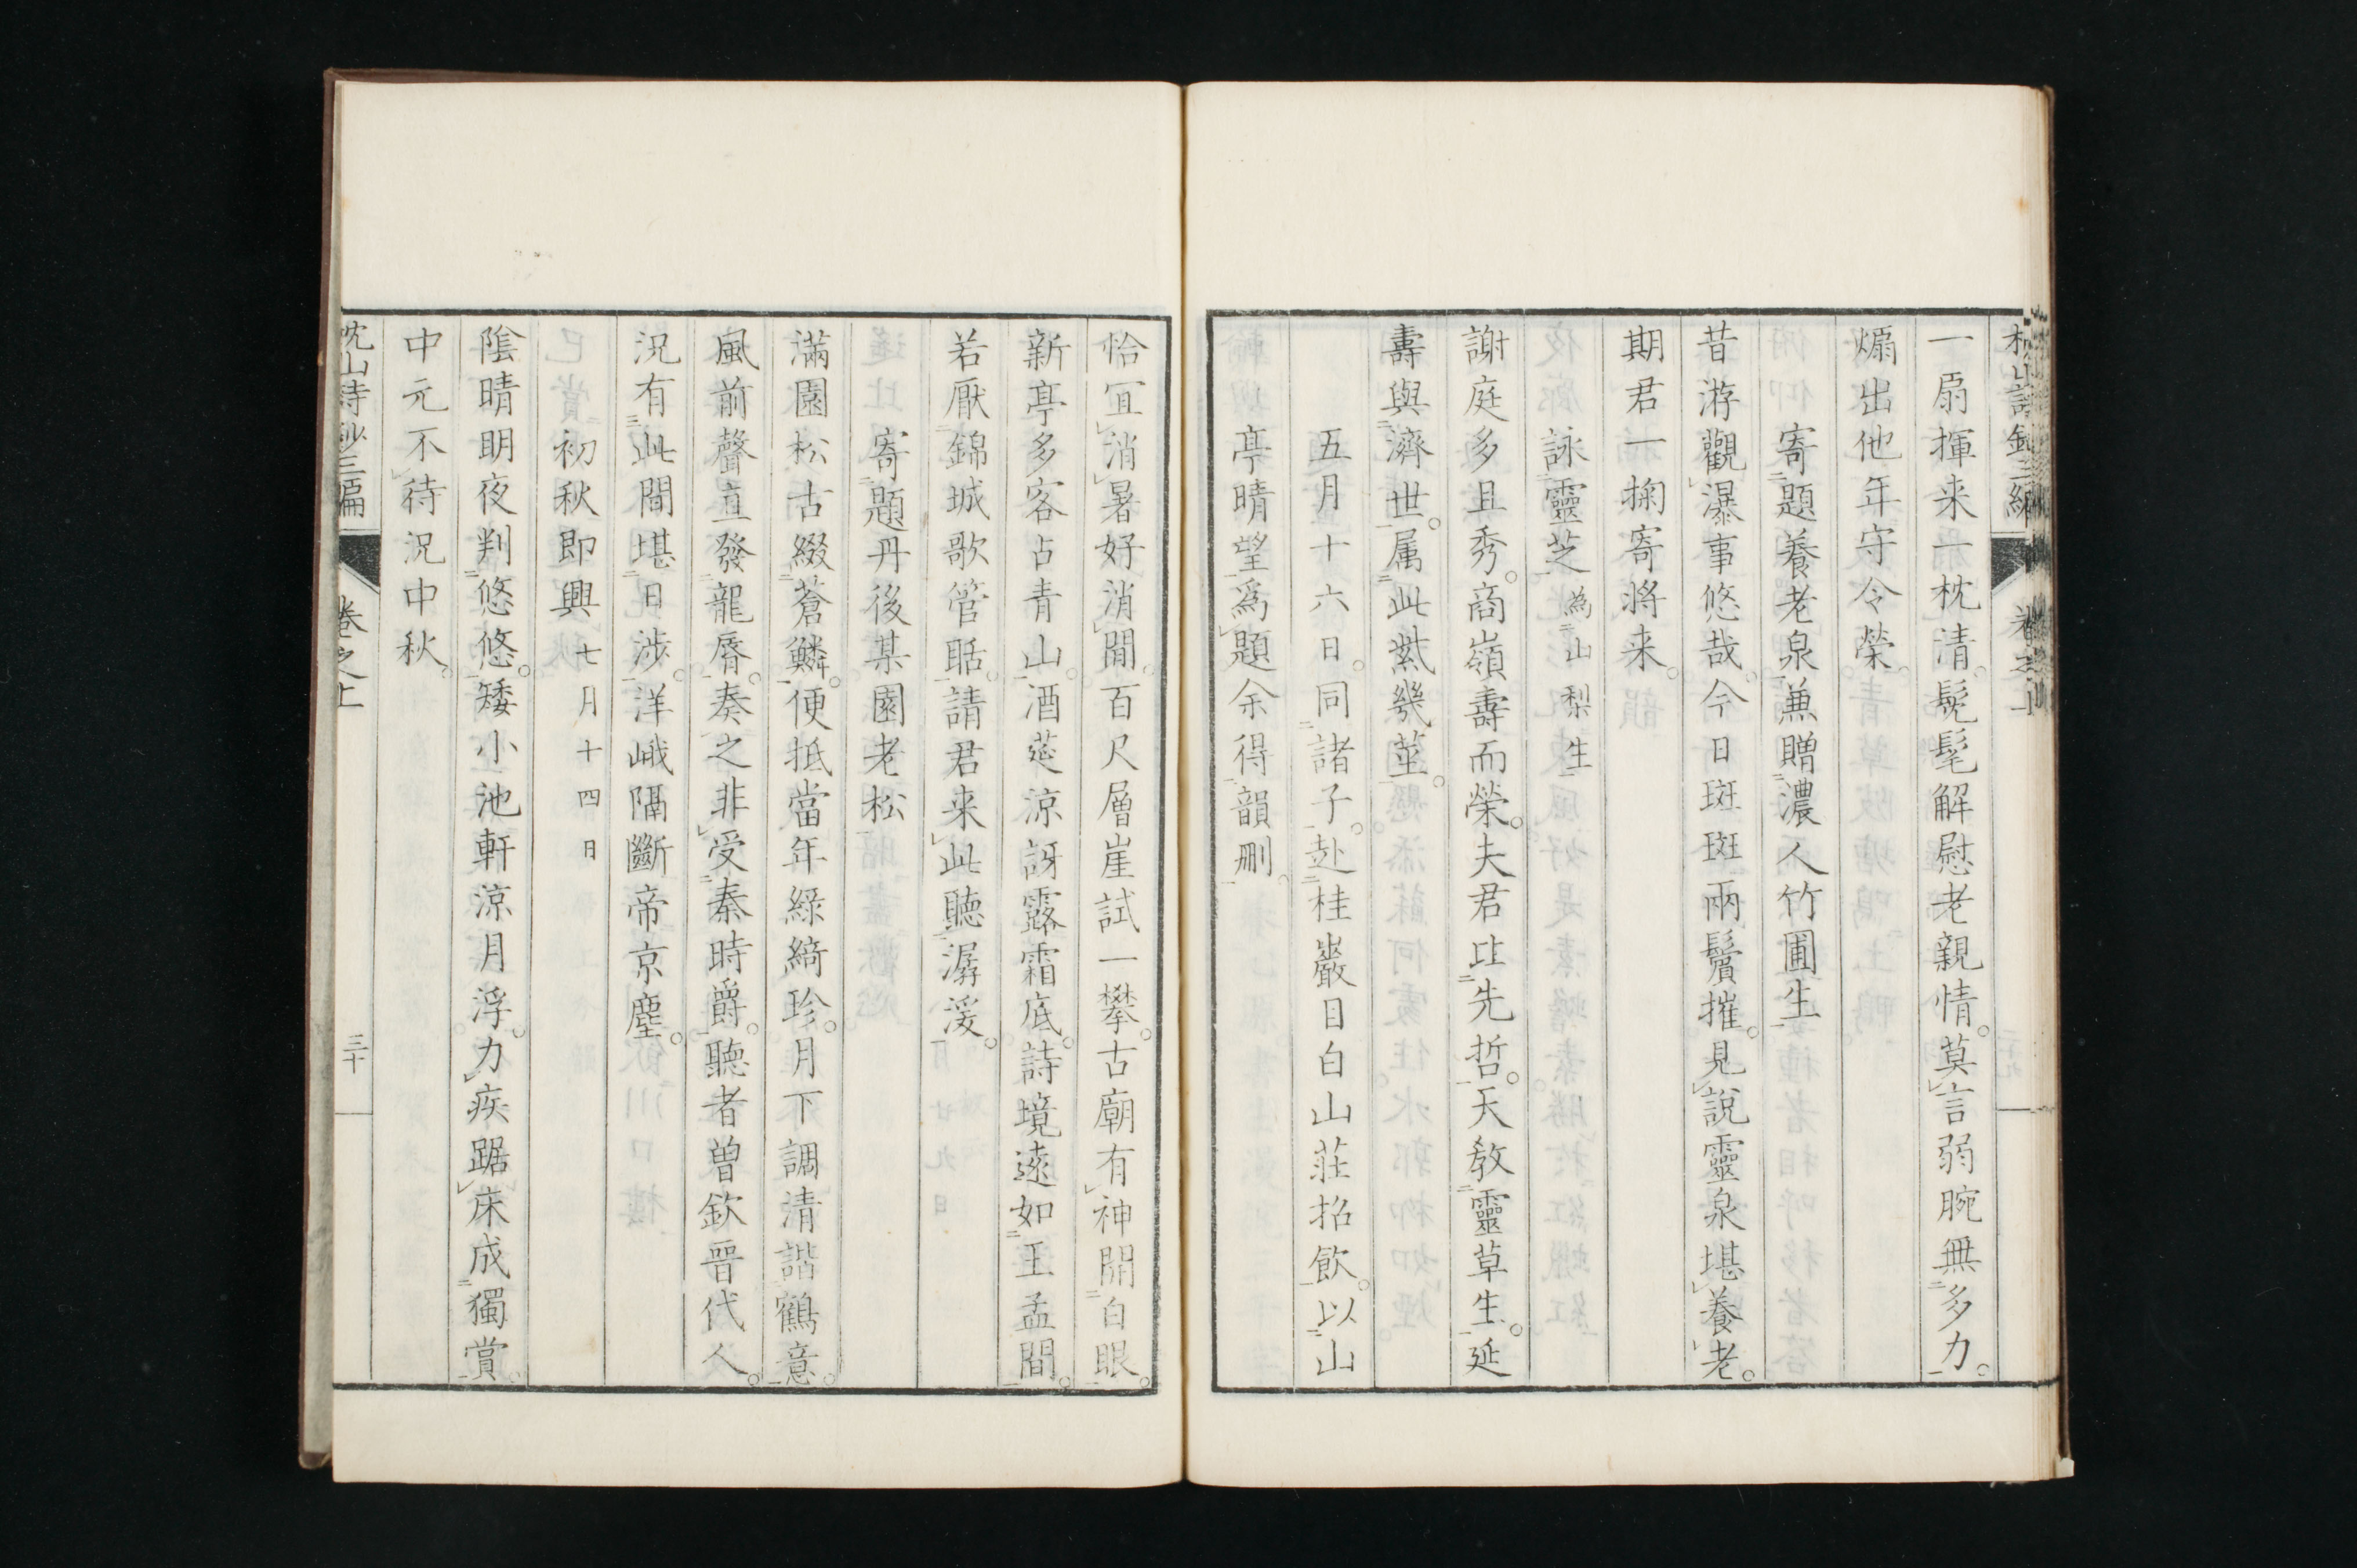 一扇揮来一枕清髧髦解慰老親情莫言弱腕無多力
煽出他年守令榮
寄題養老泉兼贈濃人竹圃生
昔游觀瀑事悠哉今日斑斑兩鬢摧見說靈泉堪養老
期君一掬寄將来
詠靈芝為山梨生
謝庭多且秀商嶺壽而榮夫君比先哲天教靈草生延
壽與濟世属此紫幾莖
五月十六日同諸子赴桂巖日白山莊招飲以山
亭晴望爲題余得韻刪
恰宜消暑好消閒百尺層崖試一攀古廟有神開白眼
新亭多客占青山酒莚涼訝露霜底詩境遠如王孟間
若厭錦城歌管聒請君来此聽潺湲
寄題丹後某園老松
滿園松古綴蒼鱗便抵當年綠綺珍月下調清諧鶴意
風前聲直發龍脣奏之非受秦時爵聽者曽欽晋代人
況有此間堪日涉洋峨隔斷帝京塵
初秋即興七月十四日
陰晴明夜判悠悠矮小池軒涼月浮力疾踞床成獨賞
中元不待況中秋
枕山詩鈔三編 卷之上 三十